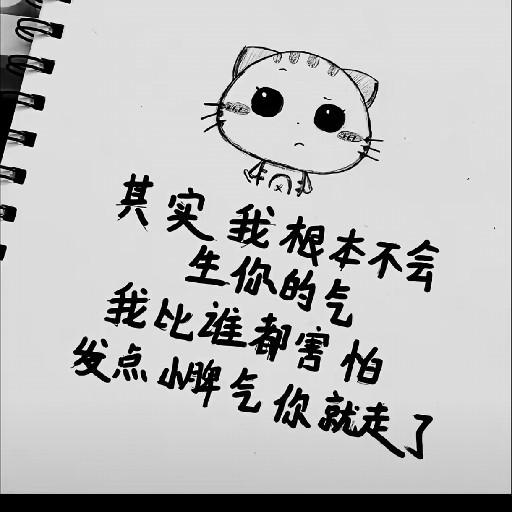 其实我根本不会
生你的气
我比谁都害怕
发点小脾气你就走了